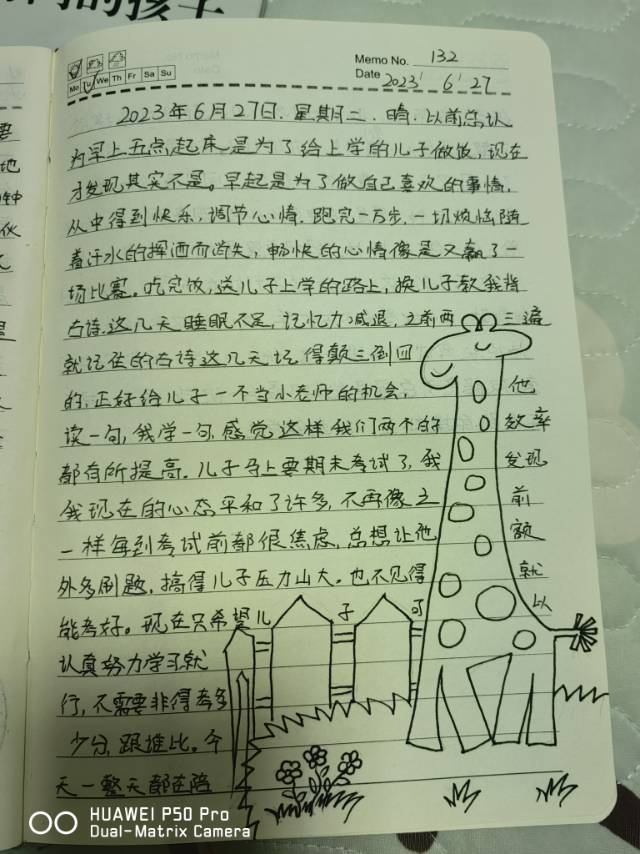 的孩子
Memo No. 132
Mo Tu We Th Fr Sa Su
Date 2023' 6' 27
2023年6月27日.星期二.晴.以前总认
为早上五点起床是为了给上学的儿子做饭,现在
才发现其实不是。早起是为了做自己喜欢的事情,
从中得到快乐,调节心情.跑完一万步,一切烦恼随
着汗水的挥洒而消失,畅快的心情像是又赢了一
场比赛。吃完饭,送儿子上学的路上,换儿子教我背
古诗.这几天睡眠不足,记忆力减退,之前两三遍
就记住的古诗这几天记得颠三倒四
的,正好给儿子一个当小老师的机会,他
读一句,我学一句,感觉这样我们两个的效率
都有所提高。儿子马上要期末考试了,我发现
我现在的心态平和了许多,不再像之前
一样每到考试前都很焦虑,总想让他额
外多刷题,搞得儿子压力山大。也不见得就
能考好。现在只希望儿子可以
认真努力学习就
行,不需要非得考多
少分,跟谁比。今
天一整天都在陪
HUAWEI P50 Pro
Dual-Matrix Camera